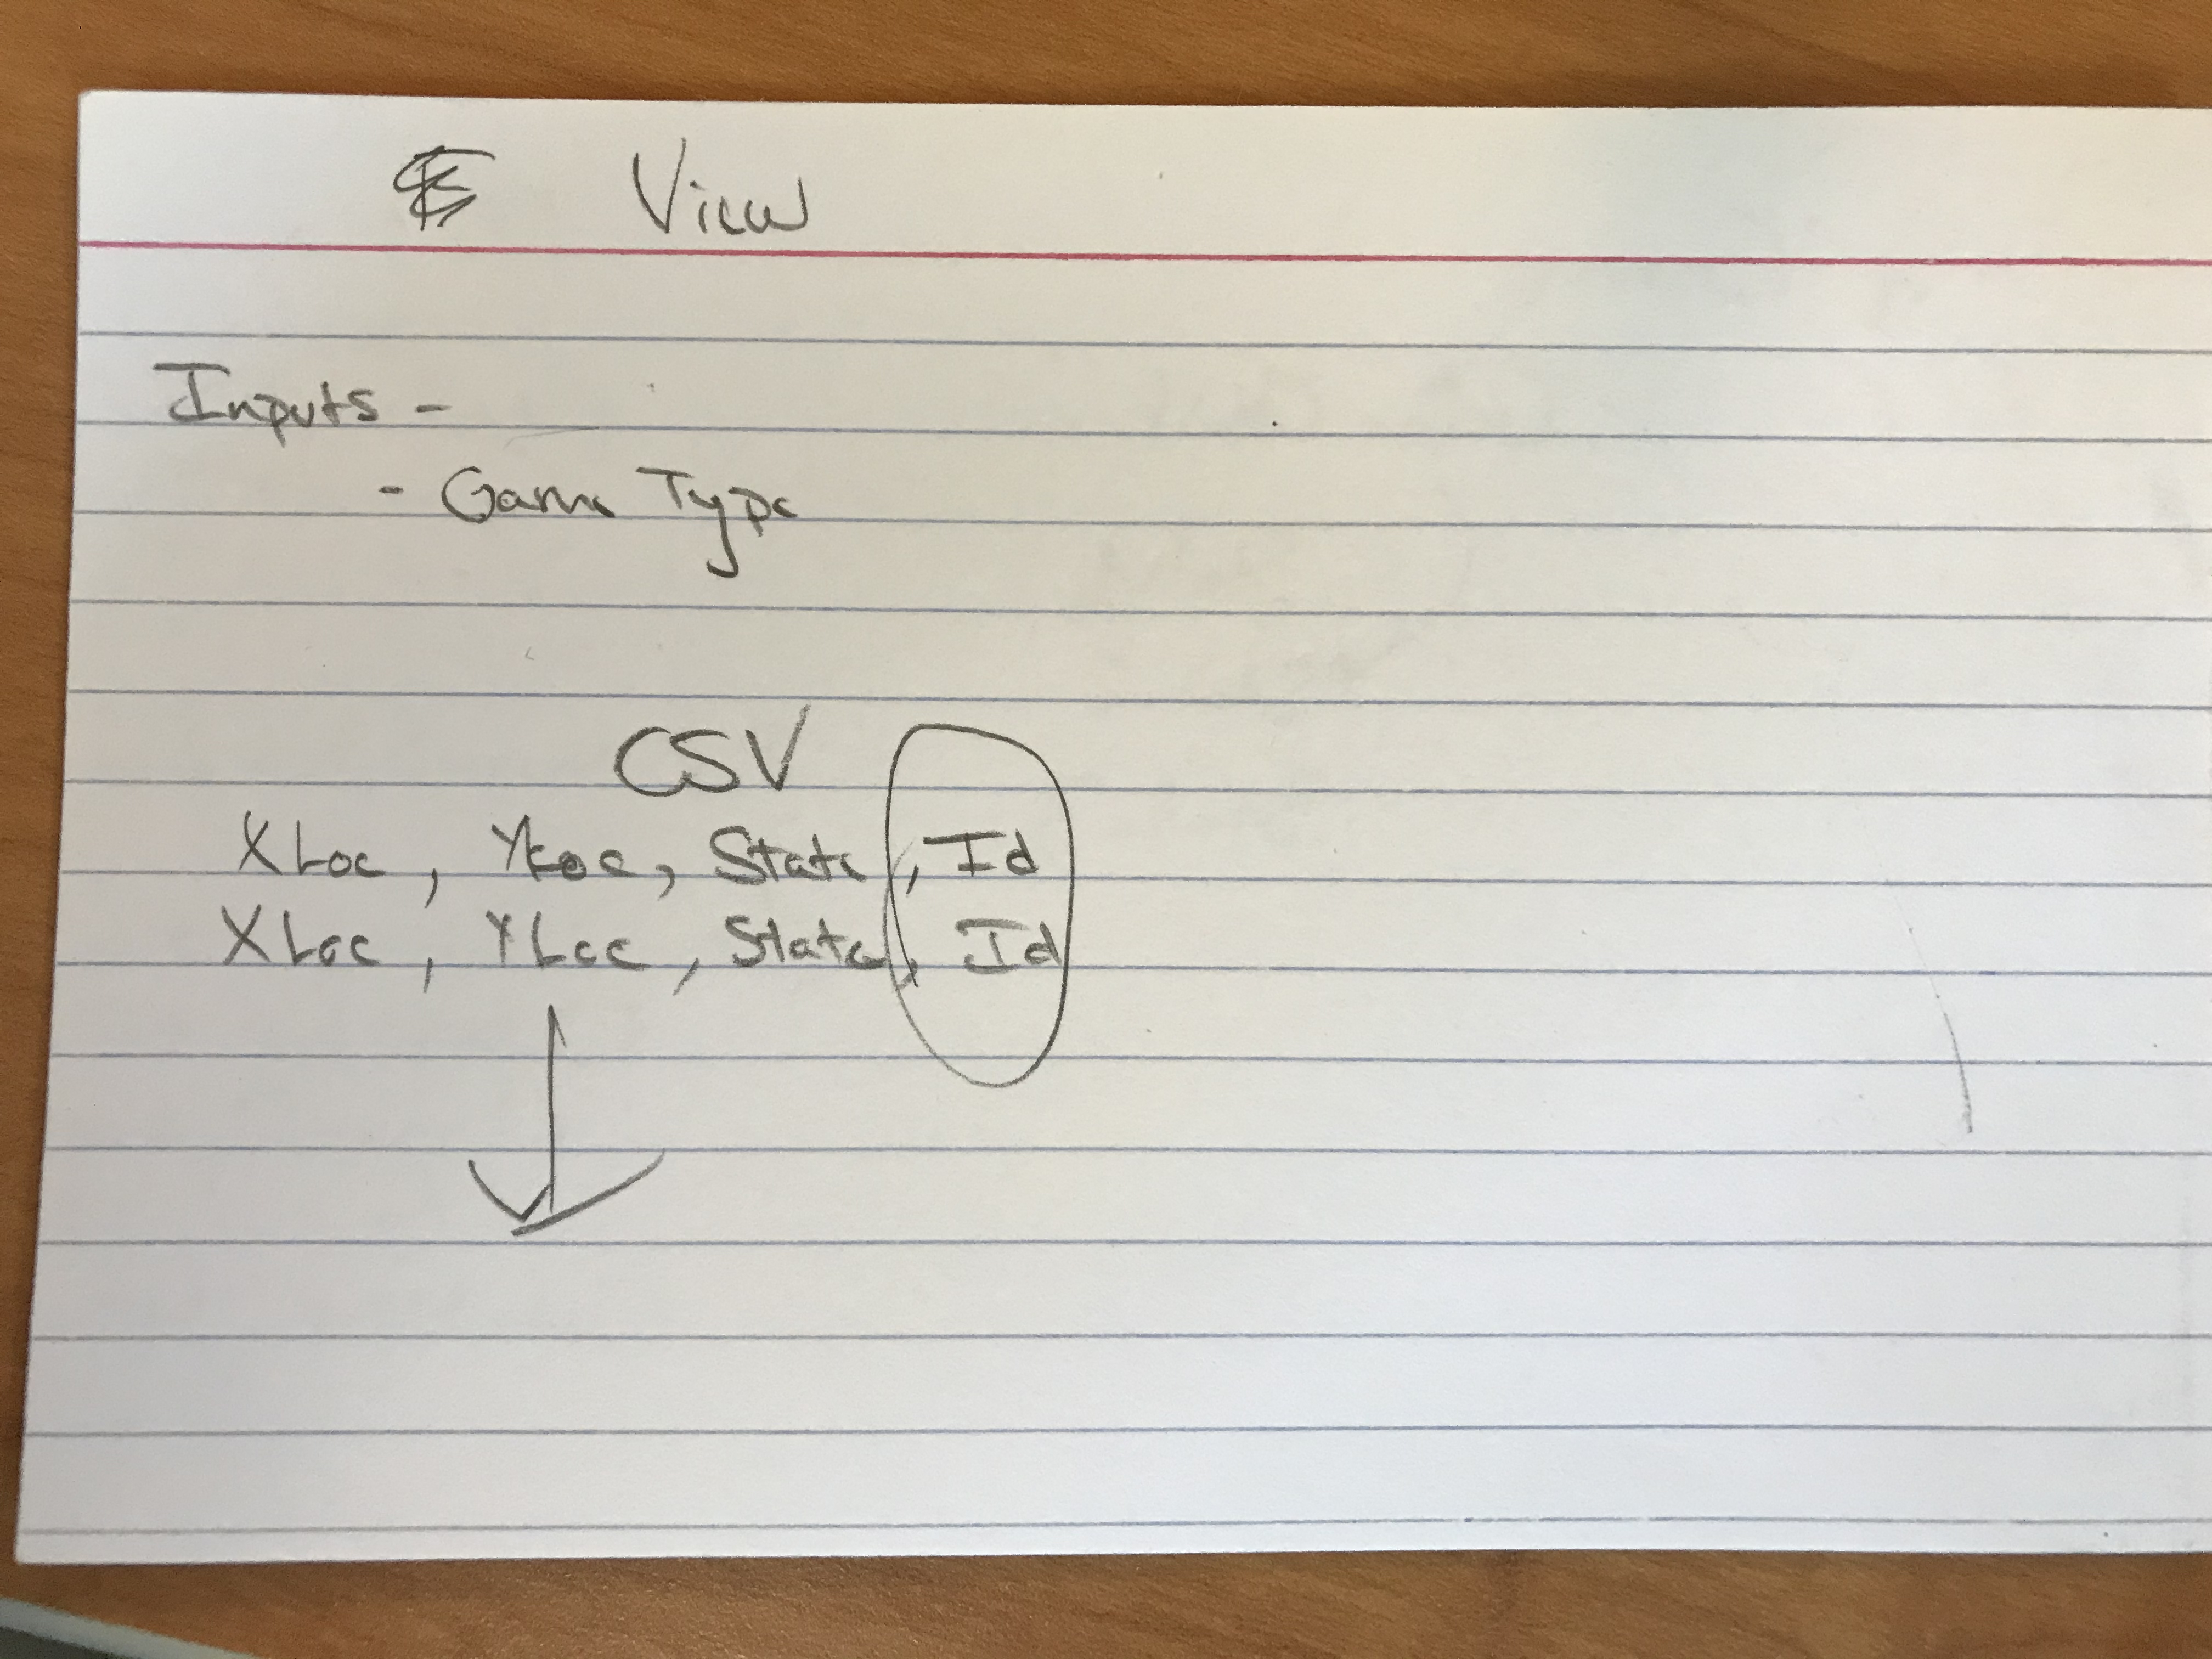 View
Inputs -
- Game Type
CSV
XLoc, YLoc, State, Id
XLoc, YLoc, State, Id